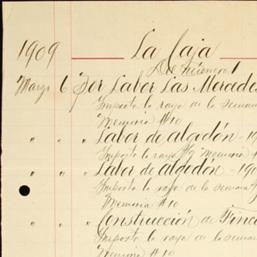 1909 La Caja
Marzo 6 Por Labor Las Mercedes
Importe la raya de la semana
Memoria #10
" " Labor de algodón - 19
Importe la raya #9 Memoria
" " Labor de algodón - 190
Importe la raya de la semana
Memoria #10
" " Construcción de Finca
Importe la raya de la semana
Memoria #10